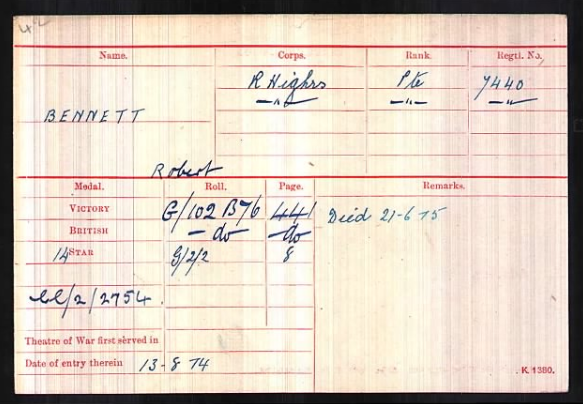 Name. Corps. Rank. Regtl. No.
R Highrs Pte 7440
BENNETT —"— —"— —"—
Robert
Medal. Roll. Page. Remarks.
VICTORY G/102 B76 441 Died 21-6-15
BRITISH — do — do
14 STAR G/2/2 8
/2/2754.
Theatre of War first served in
Date of entry therein 13-8-14
K. 1380.